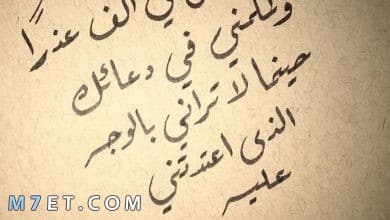 لي الف عذرًا
ولملمني في دعائك
حينما لا تراني بالوجه
الذى اعتدتني
عليه
M7ET.COM